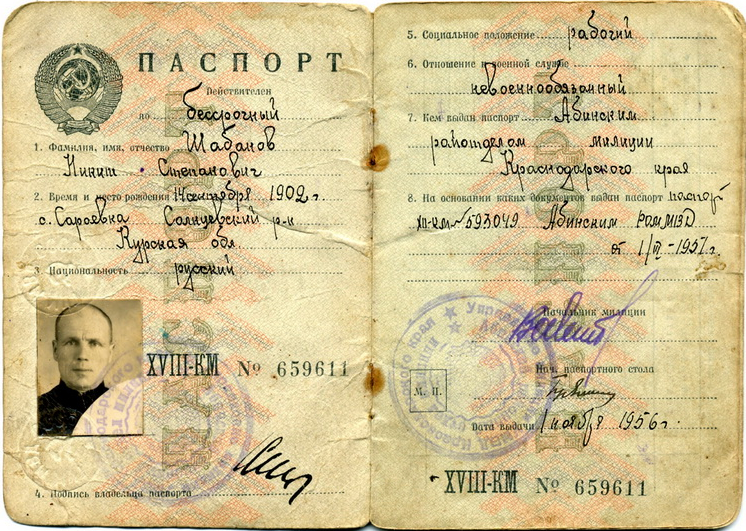 ПАСПОРТ
Действителен
по бессрочный
1. Фамилия, имя, отчество Шабанов
Никит Степанович
2. Время и место рождения 14 сентября 1902 г.
с. Сараевка Солнцевский р-н
Курская обл.
3. Национальность русский
XVIII-КМ № 659611
4. Подпись владельца паспорта
5. Социальное положение рабочий
6. Отношение к военной службе
невоеннообязанный
7. Кем выдан паспорт Абинским
райотделом милиции
Краснодарского края
8. На основании каких документов выдан паспорт паспорт
№ 593049 Абинским РОМ МВД
от
Начальник милиции
Нач. паспортного стола
М. П.
Дата выдачи 1 ноября 1956 г.
XVIII-КМ № 659611